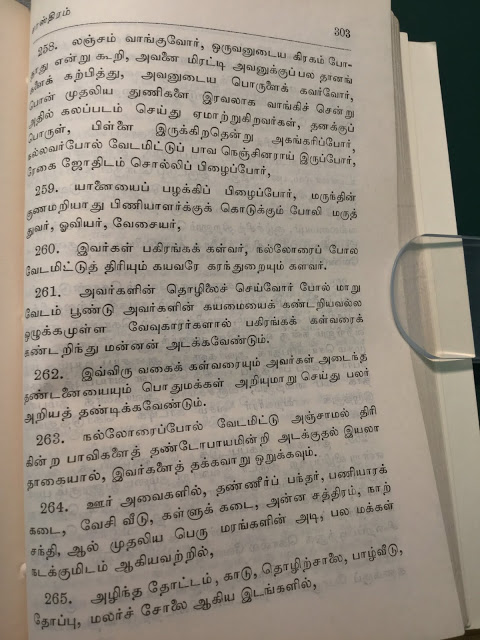 303
258. லஞ்சம் வாங்குவோர், ஒருவனுடைய கிரகம் போ-
தாது என்று கூறி, அவனை மிரட்டி அவனுக்குப் பல தானங்
களைக் கற்பித்து, அவனுடைய பொருளைக் கவர்வோர்,
பொன் முதலிய துணிகளை இரவலாக வாங்கிச் சென்று
அதில் கலப்படம் செய்து ஏமாற்றுகிறவர்கள், தனக்குப்
பொருள், பிள்ளை இருக்கிறதென்று அகங்கரிப்போர்,
நல்லவர்போல் வேடமிட்டுப் பாவ நெஞ்சினராய் இருப்போர்,
ரேகை ஜோதிடம் சொல்லிப் பிழைப்போர்,
259. யானையைப் பழக்கிப் பிழைப்போர், மருந்தின்
குணமறியாது பிணியாளர்க்குக் கொடுக்கும் போலி மருத்
துவர், ஓவியர், வேசையர்,
260. இவர்கள் பகிரங்கக் கள்வர், நல்லோரைப் போல
வேடமிட்டுத் திரியும் கயவரே கரந்துறையும் களவர்.
261. அவர்களின் தொழிலைச் செய்வோர் போல் மாறு
வேடம் பூண்டு அவர்களின் கயமையைக் கண்டறியவல்ல
ஒழுக்கமுள்ள வேவுகாரர்களால் பகிரங்கக் கள்வரைக்
கண்டறிந்து மன்னன் அடக்கவேண்டும்.
262. இவ்விரு வகைக் கள்வரையும் அவர்கள் அடைந்த
தண்டனையையும் பொதுமக்கள் அறியுமாறு செய்து பலர்
அறியத் தண்டிக்கவேண்டும்.
263. நல்லோரைப்போல் வேடமிட்டு அஞ்சாமல் திரி
கின்ற பாவிகளைத் தண்டோபாயமின்றி அடக்குதல் இயலா
தாகையால், இவர்களைத் தக்கவாறு ஒறுக்கவும்.
264. ஊர் அவைகளில், தண்ணீர்ப் பந்தர், பணியாரக்
கடை, வேசி வீடு, கள்ளுக் கடை, அன்ன சத்திரம், நாற்
சந்தி, ஆல் முதலிய பெரு மரங்களின் அடி, பல மக்கள்
நடக்குமிடம் ஆகியவற்றில்,
265. அழிந்த தோட்டம், காடு, தொழிற்சாலை, பாழ்வீடு,
தோப்பு, மலர்ச் சோலை ஆகிய இடங்களில்,